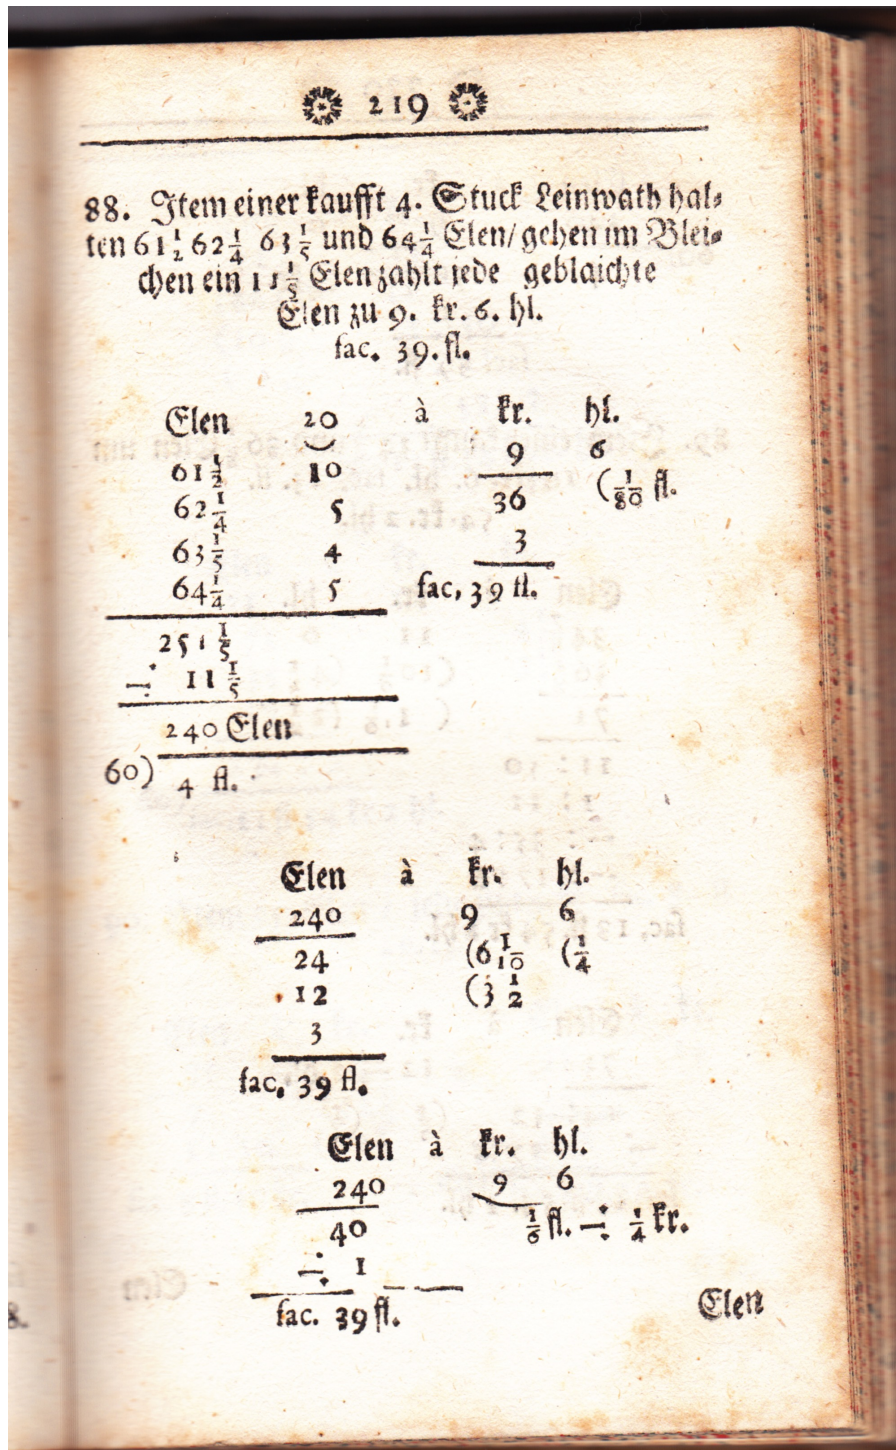 219
88. Item einer kaufft 4. Stuck Leinwath hal-
ten 61 1/2 62 1/4 63 1/5 und 64 1/4 Elen/ gehen im Blei-
chen ein 11 1/5 Elen zahlt jede geblaichte
Elen zu 9. kr. 6. hl.
fac. 39. fl.
Elen 20 à kr. hl.
61 1/2 10 9 6
62 1/4 5 36 ( 1/80 fl.
63 1/5 4 3
64 1/4 5 fac, 39 fl.
251 1/5
÷ 11 1/5
240 Elen
60) 4 fl.
Elen à kr. hl.
240 9 6
24 (6 1/10 ( 1/4
12 (3 1/2
3
fac, 39 fl.
Elen à kr. hl.
240 9 6
40 1/6 fl. ÷ 1/4 kr.
÷ 1
fac. 39 fl.
Elen